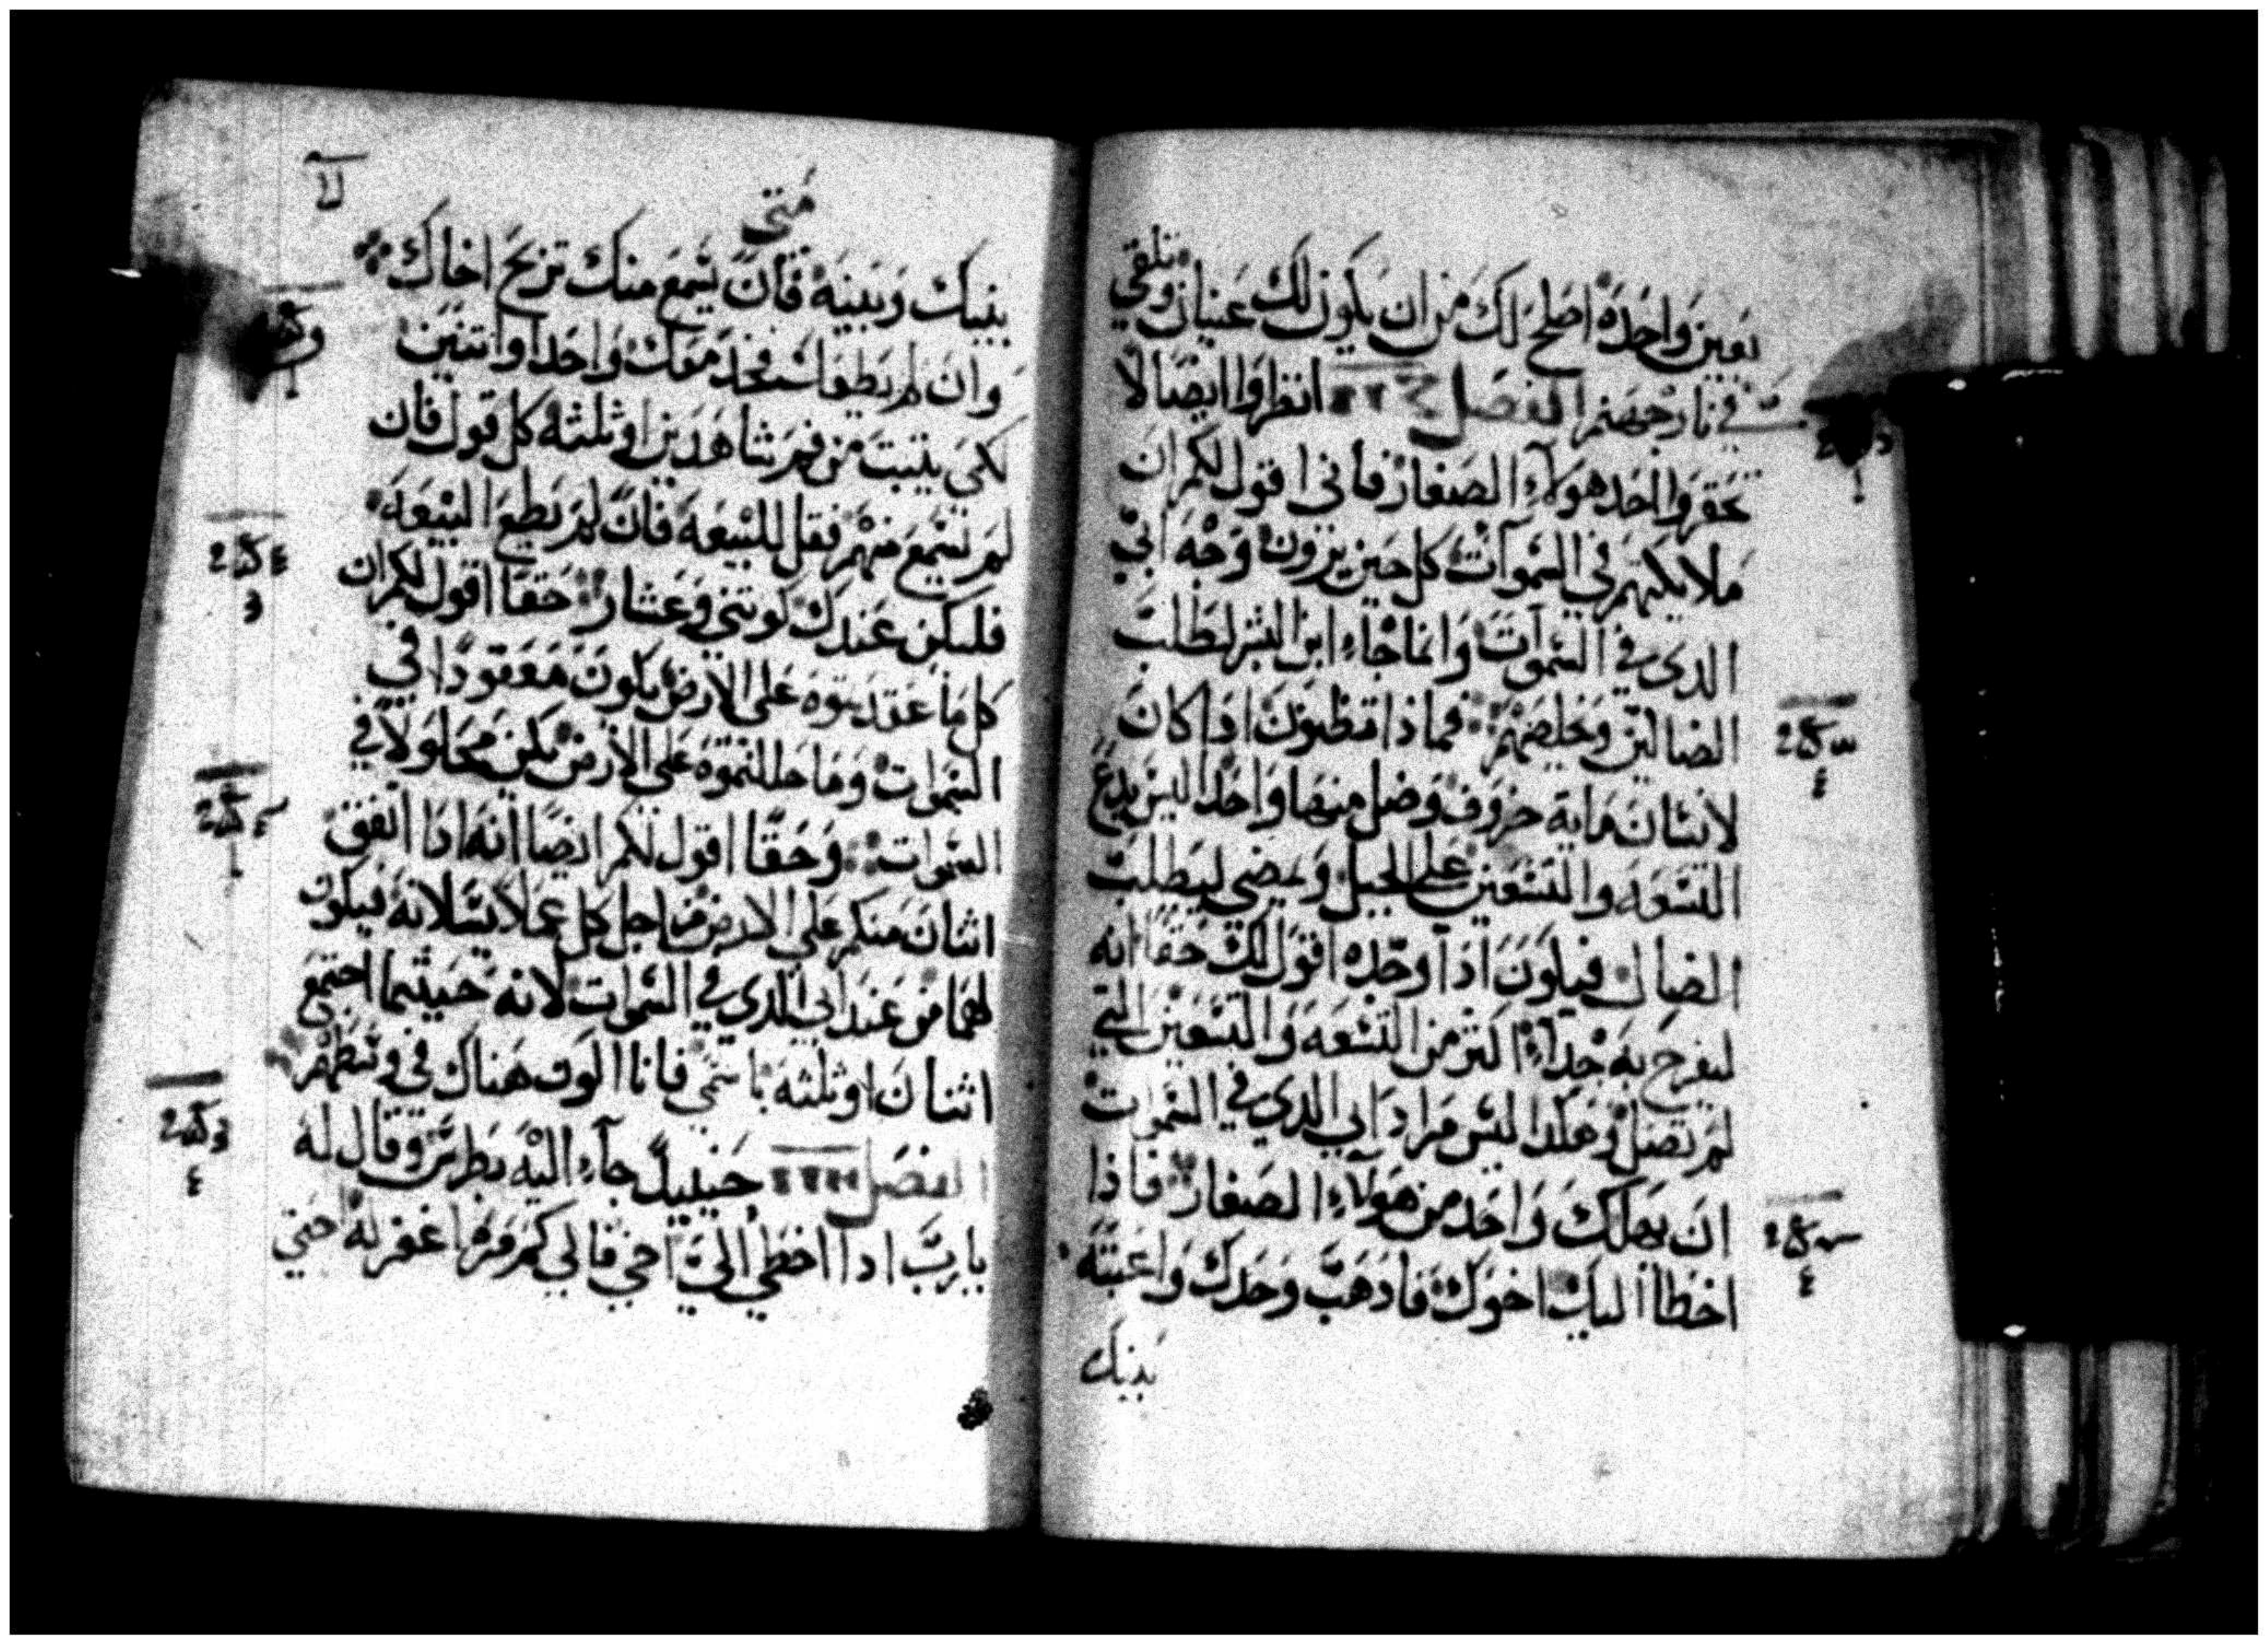 بعين واحده اصلح لك من ان يكون لك عينان وتلقي
في نار جهنم الفصل انظروا ايضا لا
تحقروا احد هولاء الصغار فاني اقول لكم ان
ملايكتهم في السموات كل حين يرون وجه ابي
الدي في السموات وانما جاء ابن البشر ليطلب
الضالين وتخلصهم فماذا تظنون اذا كان
لانسان مايه خروف وضل منها واحدا اليس يدع
التسعه والتسعين علي الجبل ويمضي ليطلب
الضال فيكون اذا وجده اقول لك حقا انه
ليفرح به جداً اكتر من التسعه والتسعين التي
لم تضل وهكدا ليس مراد ابي الدي في السموات
ان يهلك واحد من هولاء الصغار فاذا
اخطا اليك اخوك فادهب وحدك واعتبه
بينك
متي
بينك وبينه فان يسمع منك تربح اخاك
وان لم يطعك فخد معك واحدا او اتنين
لكي يثبت من فم شاهدين او ثلثه كل قول فان
لم يسمع منهم فقل للبيعه فان لم يطع البيعه
فليكن عندك كوتني وعشار حقا اقول لكم ان
كل ما عقدتموه علي الارض يكون معقودا في
السموات وما حللتموه علي الارض يكن محلولا في
السموات وحقا اقول لكم ايضا انه ادا اتفق
اثنان منكم علي الارض من اجل كل عملا يسلانه فيكون
لهما من عند ابي الدي في السموات لانه حيثما اجتمع
اثنان او ثلثه باسمي فانا اكون هناك في وسطهم
الفصل حينيدً جاء اليه بطرس وقال له
يا رب ادا اخطي اليّ اخي فالي كم مره اغفر له احتي